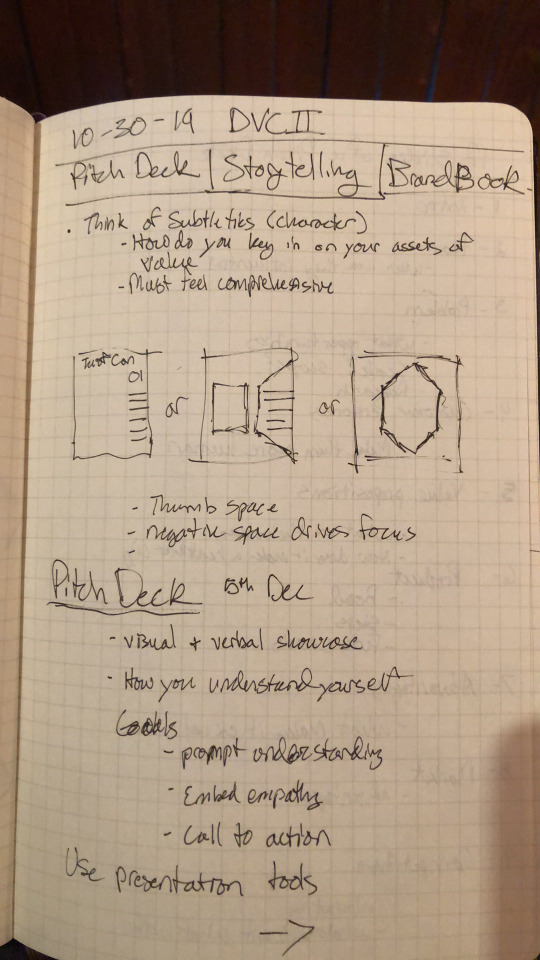 10-30-19 DVC II
Pitch Deck | Storytelling | BrandBook
• Think of Subtleties (character)
- How do you key in on your assets of
value
- Must feel comprehensive
01
or
or
- Thumb space
- negative space drives focus
-
Pitch Deck 5th Dec
- visual + verbal showcase
- How you understand yourself
Goals
- prompt understanding
- Embed empathy
- Call to action
Use presentation tools
→